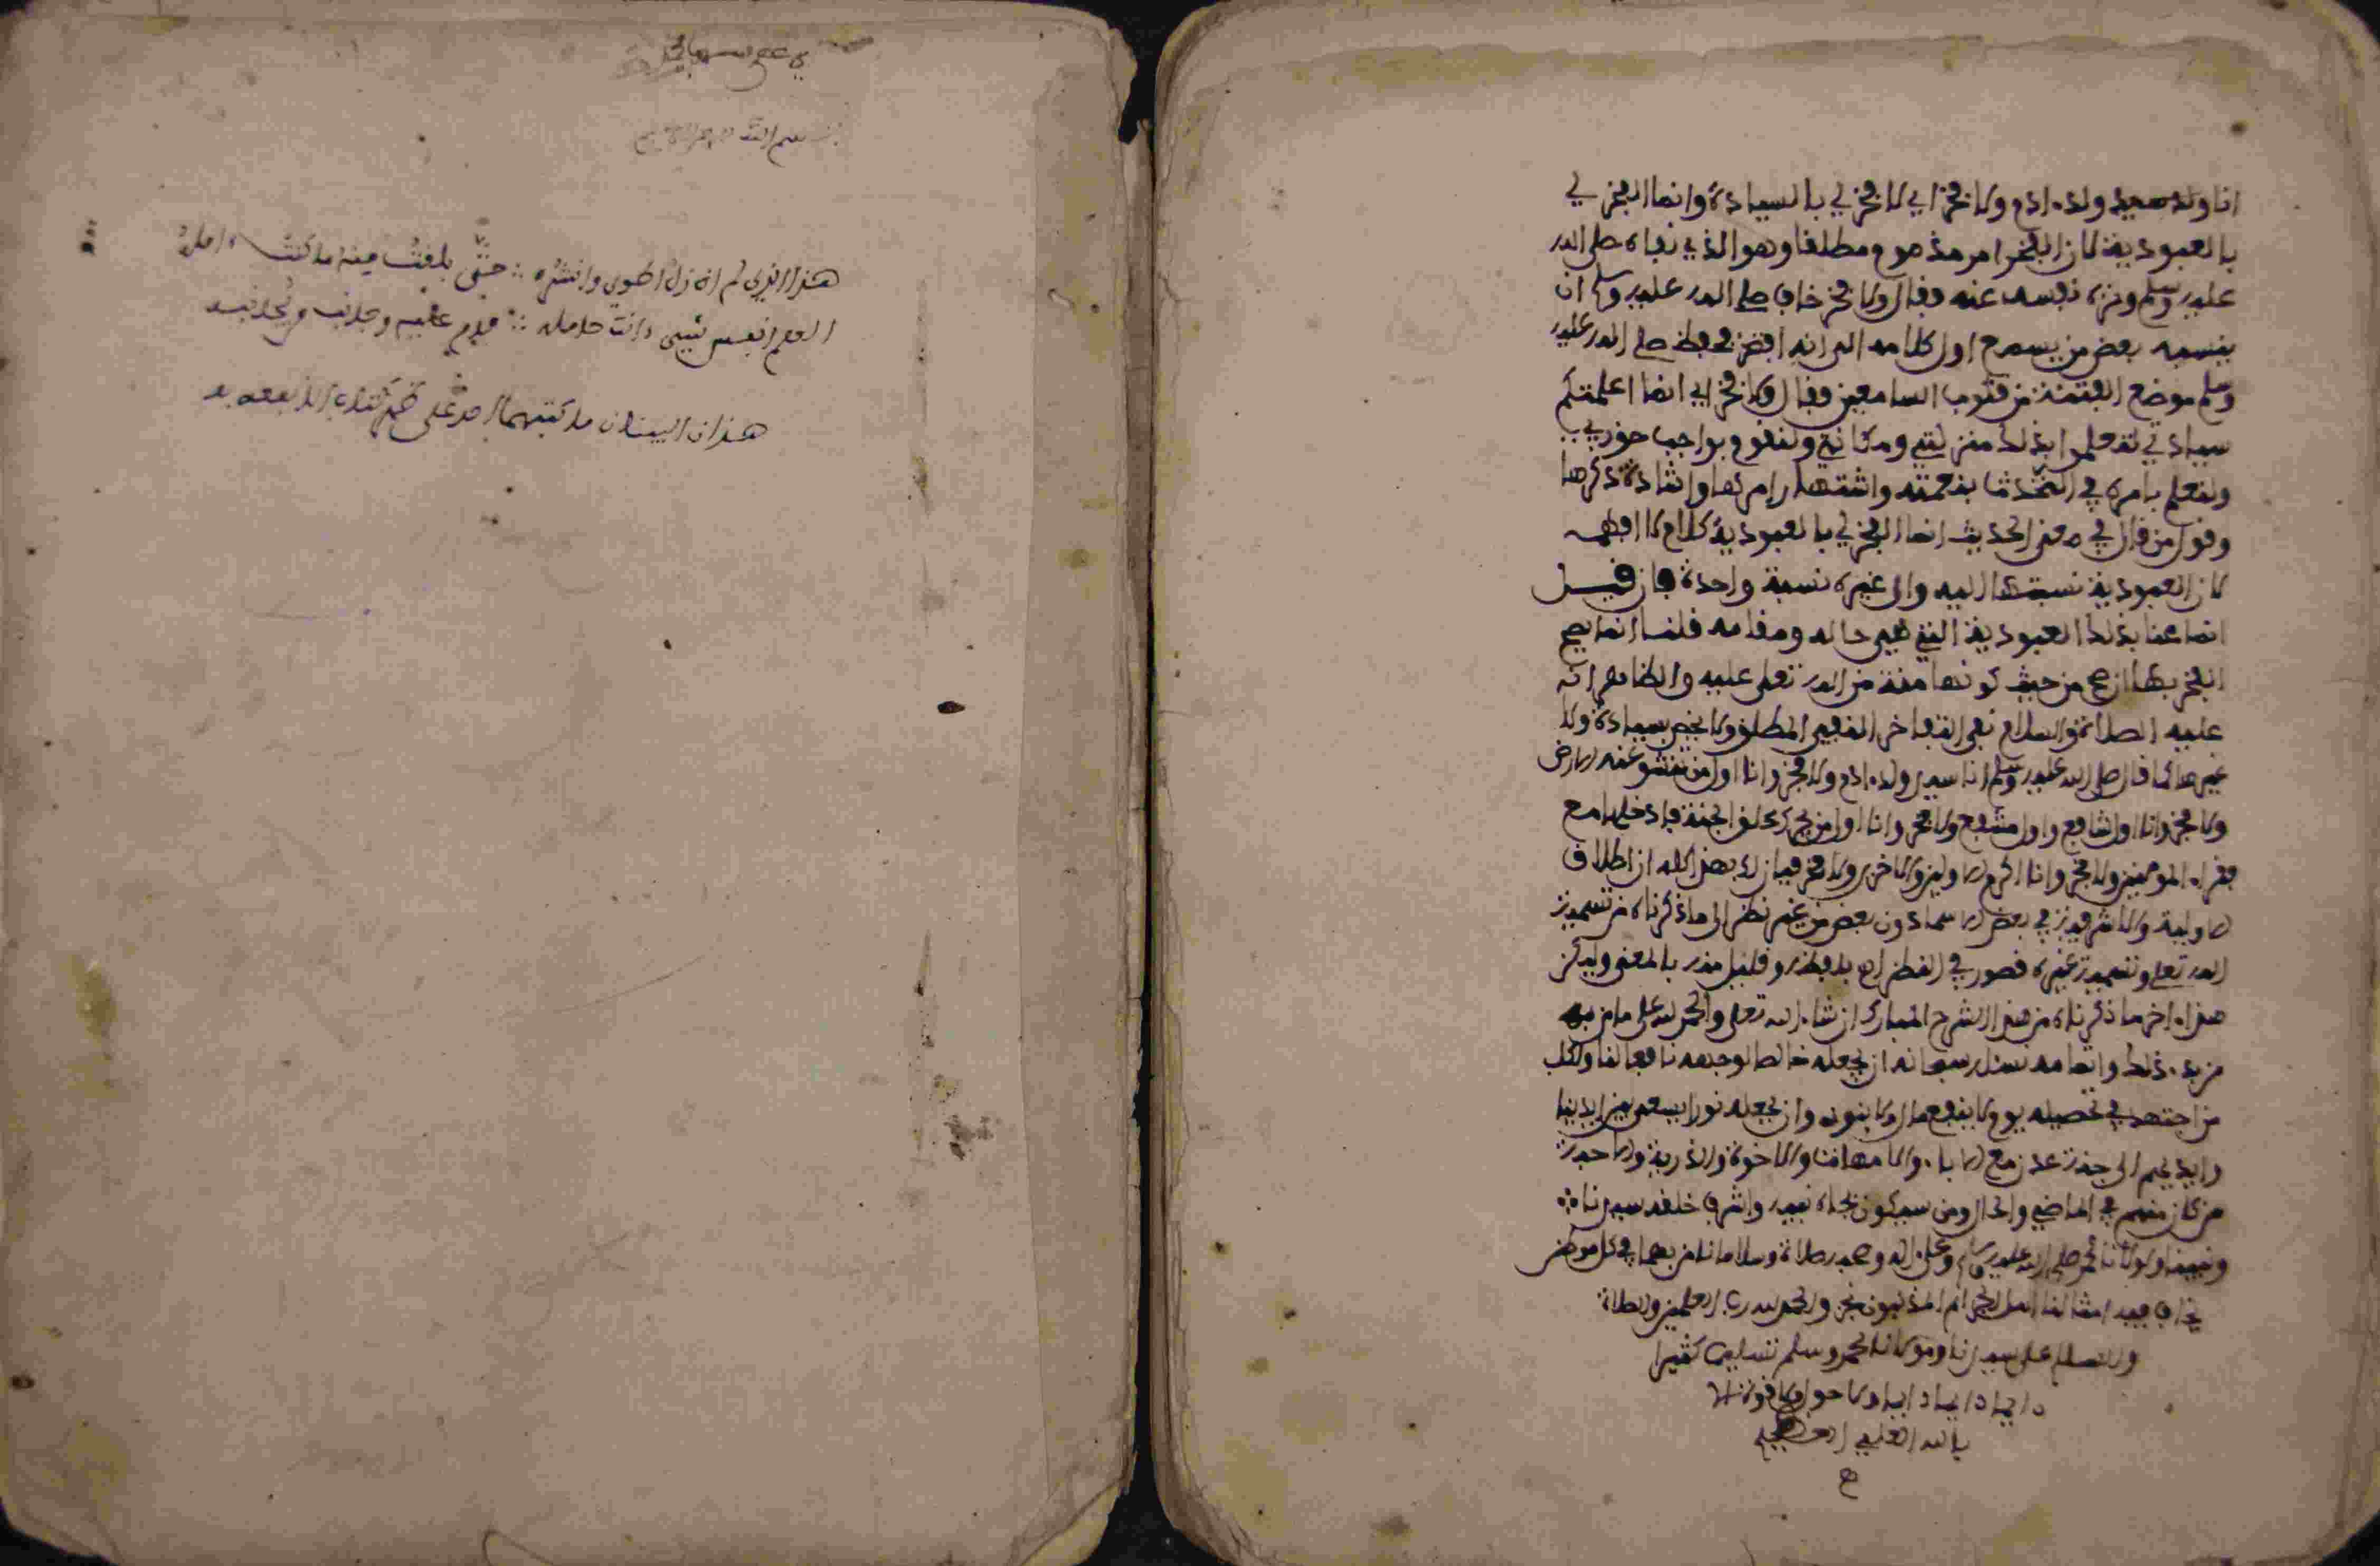 انا ولد سيد ولد ادم ولا فخر اي لا فخر لي بالسيادة وانما الفخر لي
بالعبودية لان الفخر امر مذموم مطلقا وهو الذي نفاه صلى الله
عليه وسلم ونزه نفسه عنه فقال ولا فخر خاف صلى الله عليه وسلم ان
بعض من يسمع اول كلامه الى انه افتخر فحفظ صلى الله عليه
وسلم موضع الفتنة من قلوب السامعين فقال ولا فخر اي انما اعلمتكم
سيادتي لتعلموا بذلك منزلتي ومكانتي وتقوموا بواجب حقوقي
بامره في التحدث بنعمته واشادة ذكرها
وقول من قال في معنى الحديث انما الفخر لي بالعبودية كلام لا افهمه
لان العبودية نسبتها اليه والى غيره نسبة واحدة فان قيل
انما عنا بذلك العبودية التي هي حاله ومقامه قلنا انما يصح
الفخر بها ان صح من حيث كونها منة من الله تعلى عليه والظاهر انه
عليه الصلاة والسلام نفى التفاخر المطلق ولا يخص بسيادة ولا
غيرها كما قال صلى الله عليه وسلم انا سيد ولد ادم ولا فخر وانا اول من تنشق عنه الارض
ولا فخر وانا اول شافع واول مشفع ولا فخر وانا اول من يحرك حلق الجنة فادخلها مع
فقراء المومنين ولا فخر وانا اكرم الاولين والاخرين ولا فخر فبان لك بهذا كله ان اطلاق
في بعض الاسما دون بعض من غير نظر الى ما ذكرناه من تسمية
الله تعلى وتسمية غيره قصور في النظر بالمعنى وليكن
هذا اخر ما ذكرناه من هذا الشرح المبارك ان شاء الله تعلى والحمد لله على ما من به
من بدء ذلك واتمامه نسئله سبحانه ان يجعله خالصا لوجهه نافعا لنا ولكل
من اجتهد في تحصيله يوم لا ينفع مال ولا بنون وان يجعله نورا يسعى بين ايدينا
وايديهم الى جنة عدن مع الاباء والامهات والاخوة والذرية والاحبة
من كان منهم في الماضي والحال ومن سيكون بجاه نبيه واشرف خلقه سيدنا
ونبينا ومولانا محمد صلى الله عليه وسلم وعلى اله وصحبه صلاة وسلاما نامن بهما في كل موطن
يخاف فيه امثالنا اهل الجرائم المذنبون نحن والحمد لله رب العلمين والصلاة
والسلام على سيدنا ومولانا محمد وسلم تسليما كثيرا
دايما دايما ابدا ولا حول ولا قوة الا
بالله العلي العظيم
بسم الله الرحمن الرحيم
هذا الذي لم ازل اطوي وانشره ∴ حتى بلغت منه ما كنت ءامله
العلم انفس شيء انت حامله ∴
هذان البيتان ما كتبهما احد على ظهر كتاب الا نفعه به